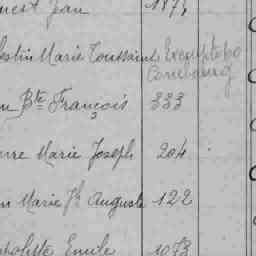 nest Jean 1874
lestin Marie Toussaint Exempté po
Bte François 333
rre Marie Joseph 204
n Marie Jh Auguste 122
politte Emile 1073